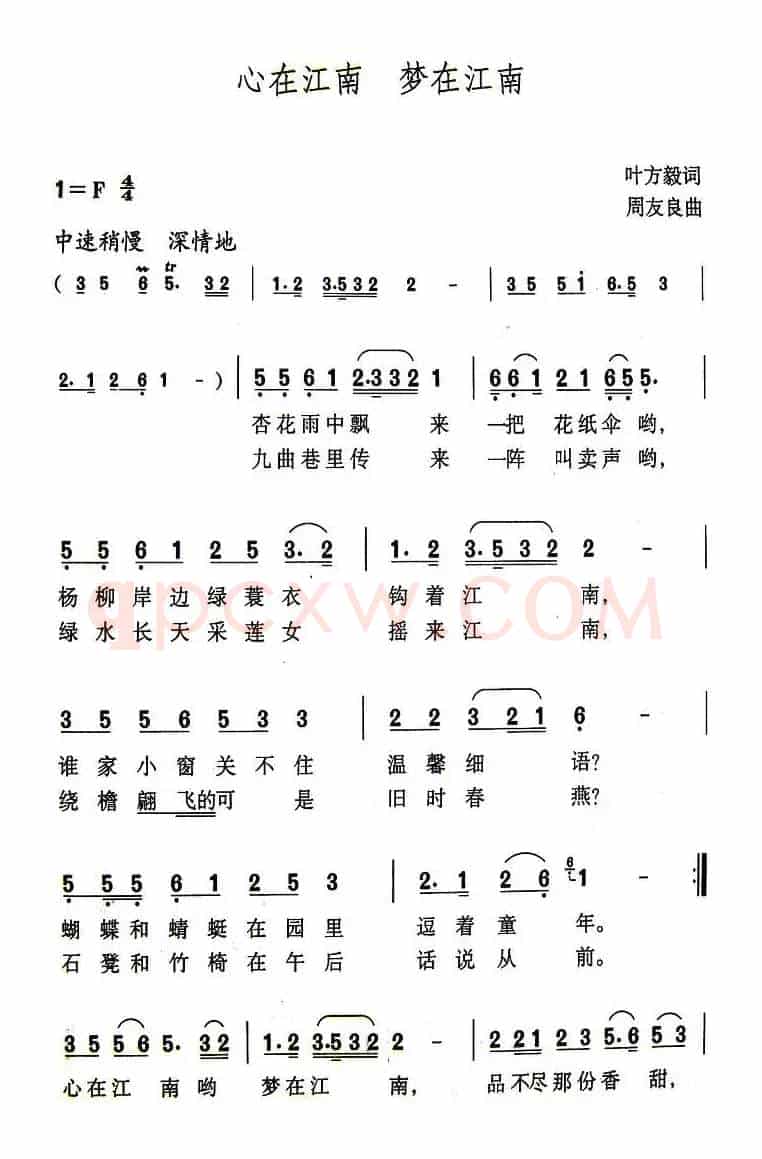 心在江南 梦在江南
1=F 4/4
叶方毅词
周友良曲
中速稍慢 深情地
( 3 5 6 5. 32 | 1.2 3.532 2 - | 35 51 6.5 3 |
2.1 26 1 -) | 55 61 2.332 1 | 661 21 655. |
杏花雨中飘 来 一把 花纸伞哟,
九曲巷里传 来 一阵 叫卖声哟,
5 5 6 1 2 5 3.2 | 1.2 3.532 2 - |
杨柳岸边绿蓑衣 钩着江 南,
绿水长天采莲女 摇来江 南,
qpcxw.COM
3 5 5 6 5 3 3 | 2 2 3 21 6 - |
谁家小窗关不住 温馨细 语?
绕檐翩飞的可 是 旧时春 燕?
5 5 5 6 1 2 5 3 | 2.1 2 6 6 1 - :|
蝴蝶和蜻蜓在园里 逗着童 年。
石凳和竹椅在午后 话说从 前。
35 56 5. 32 | 1.2 3.532 2 - | 2 21 23 5.6 53 |
心在江 南哟 梦在江 南, 品不尽那份香 甜,